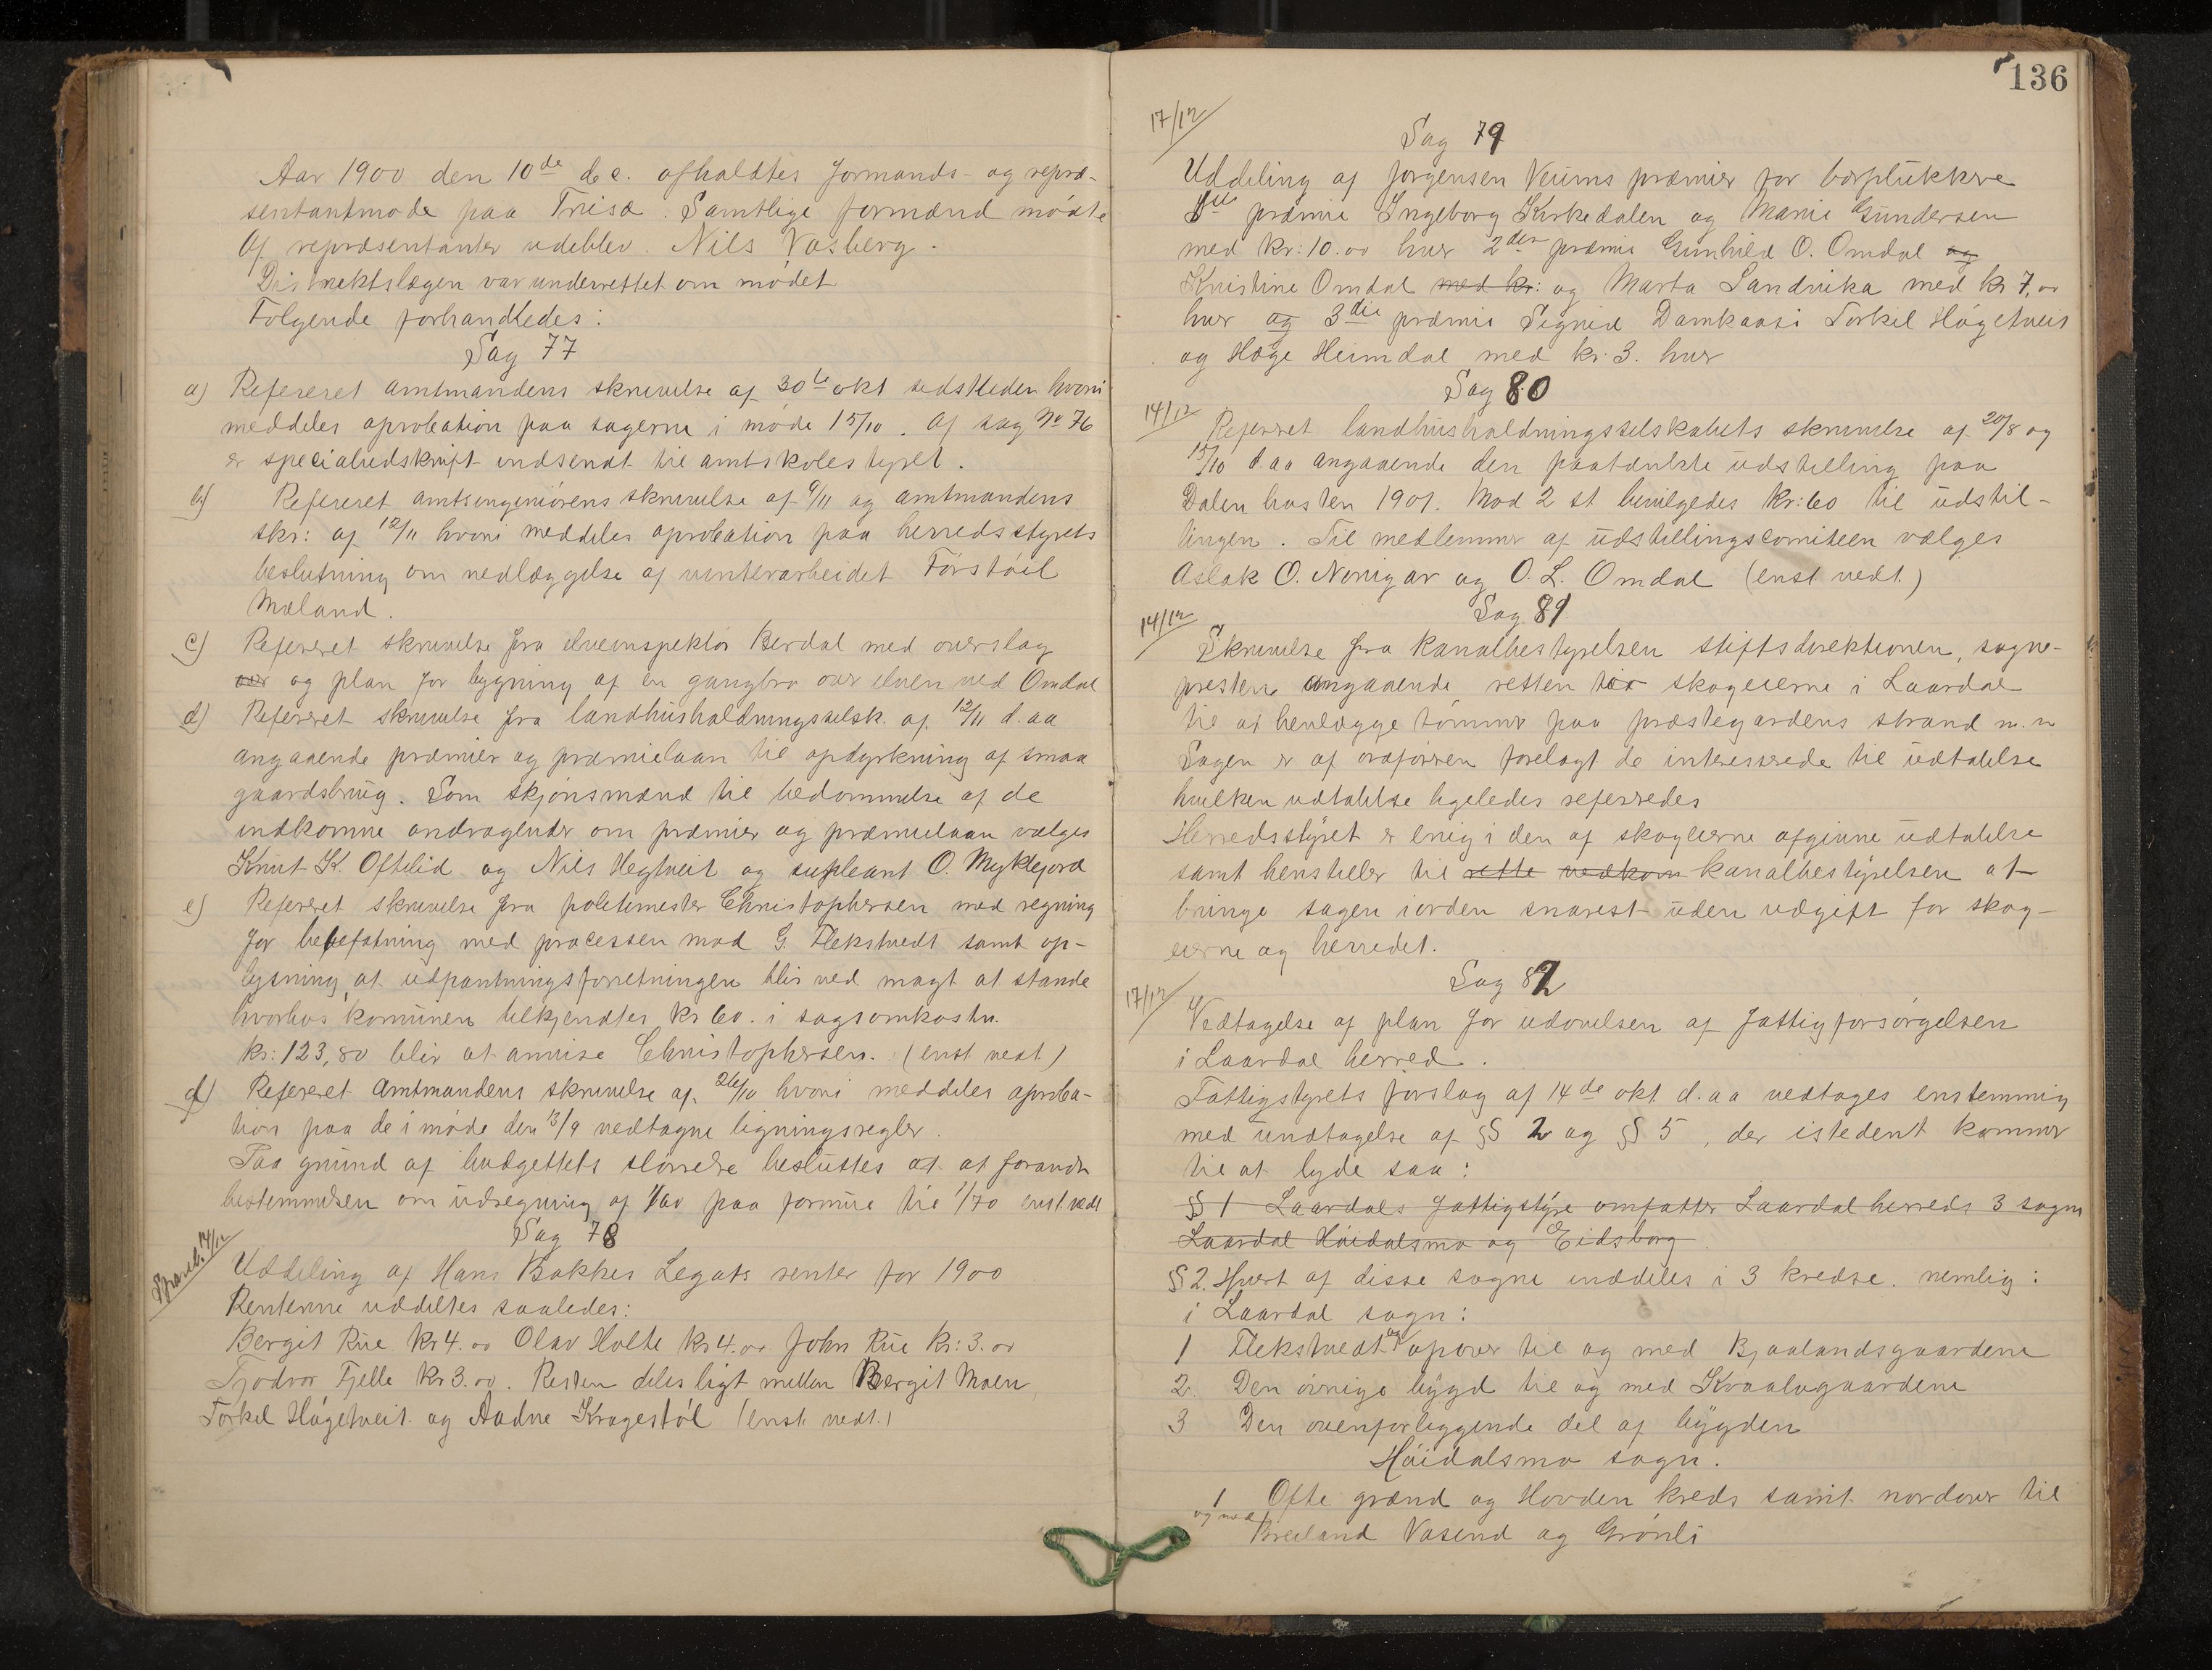 Aar 1900 den 10de dec. afholdtes formands- og repræ-
sentantmøde paa Triisæ. Samtlige formænd mødte
Af repræsentanter udeblev. Nils Vasberg.
Distriktslægen var underrettet om mødet
Følgende forhandledes:
Sag 77
a) Refereret amtmandens skrivelse af 30te okt sidstleden hvori
meddeles aprobation paa sagerne i møde 15/10. Af sag No 76
er specialudskrift indsendt til amtskolestyret.
b) Refereret amtsingeniørens skrivelse af 9/11 og amtmandens
skr: af 12/11 hvori meddeles aprobation paa herredsstyrets
beslutning om nedlæggelse af vinterarbeidet Førstøil
Mæland.
c) Refereret skrivelse fra elveinspektør Berdal med overslag
over og plan for bygning af en gangbro over elven ved Omdal
d) Refereret skrivelse fra landhusholdningsselsk. af 12/11 d. aa
angaaende præmier og præmielaan til opdyrkning af smaa
gaardsbrug. Som skjønsmænd til bedømmelse af de
indkomne andragender om præmier og præmielaan vælges
Knut K. Oftelid og Nils Hegtveit og supleant O. Myklejord
e) Refereret skrivelse fra politimester Christophersen med regning
for befatning med processen mod G. Flekstvedt samt op-
lysning at udpantningsforretningen blir ved magt at stande
hvorhos komunen tilkjendtes kr 60. i sagsomkostn.
kr: 123,80 blir at anvise Christophersen. (enst vedt.)
f) Refereret Amtmandens skrivelse af 26/10 hvori meddeles aproba-
tion paa de i møde den 13/9 vedtagne ligningsregler.
Paa grund af budgettets størrelse besluttes at at forandre
bestemmelsen om udregning af 1/60 paa formue til 1/70 enst. vedt
Sag 78
Spareb. 14/12
Uddeling af Hans Bakkes Legats renter for 1900
Renterne uddeltes saaledes:
Bergit Rue kr 4.00 Olav Holte kr 4.00 John Rue kr: 3.00
Tjodvor Fjelle kr 3.00. Resten deles ligt mellem Bergit Moen
Torkel Høgetveit og Aadne Kragestøl (enst. vedt.)
136
17/12
Sag 79
Uddeling af Jørgensen Veums præmier for bærplukkere
1ste præmie Ingeborg Kirkedalen og Marie Gundersen
med kr: 10.00 hver 2den præmie Gunhild O. Omdal og
Kristine Omdal med kr: og Marta Sandvika med kr 7,00
hver og 3die præmie Signid Damkaasi Torkel Høgetveit
og Hæge Heimdal med kr. 3. hver
Sag 80
14/12
Referret landhusholdningsselskabets skrivelse af 20/8 og
15/10 d.aa angaaende den paatænkte udstilling paa
Dalen høsten 1901. Mod 2 st bevilgedes kr: 60 til udstil-
lingen. Til medlemmer af udstillingscomiteen vælges
Aslak O. Norigar og O. L. Omdal (enst vedt.)
Sag 81
14/12
Skrivelse fra Kanalbestyrelsen stiftsdirektionen, sogne-
presten angaaende retten til skogeierne i Laardal
til at henlægge tømmer paa præstegardens strand m.m
Sagen er af ordføreren forelagt de interesserede til udtalelse
hvilken udtalelse ligeledes referredes
Herredsstyret er enig i den af skogeierne afgivne udtalelse
samt henstiller til rette vedkom kanalbestyrelsen at
bringe sagen iorden snarest uden udgift for skog-
eierne og herredet.
Sag 82
17/12
Vedtagelse af plan for udøvelsen af Fattigforsørgelsen
i Laardal herred.
Fattigstyrets forslag af 14de okt d.aa vedtages enstemmig
med undtagelse af §§ 2 og §§ 5, der istedent kommer
til at lyde saa:
§ 1 Laardals fattigstyre omfatter Laardal herreds 3 sogn
Laardal Høidalsmo og Eidsborg
§ 2. Hvert af disse sogne inddeles i 3 kredse. nemlig:
i Laardal sogn:
1 Flekstvedt og opover til og med Bjaalandsgaardene
2 Den øvrige bygd til og med Kvaalogaardene
3 Den ovenforliggende del af bygden
Høidalsmo sogn.
1 Ofte grænd og Hovden kreds samt nordover til
og med Breiland Vasend og Grønli